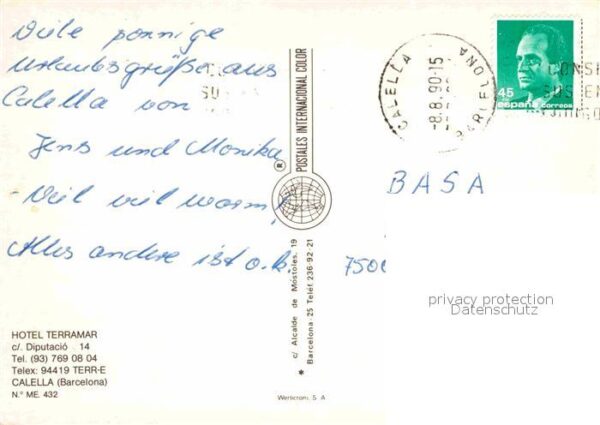 Viele sonnige
Urlaubsgrüße aus
Calella von
Jens und Monika
- Viel viel warm!
Alles andere ist o.k.
HOTEL TERRAMAR
c/. Diputació 14
Tel. (93) 769 08 04
Telex: 94419 TERR-E
CALELLA (Barcelona)
N.º ME. 432
POSTALES INTERNACIONAL COLOR
®
* c/ Alcalde de Móstoles, 19
Barcelona-25 Teléf. 236-92-21
Werlcrom, S. A
CALELLA
-8.8.90-15
BARCELONA
45
españa correos
CONS
BASA
7500
privacy protection
Datenschutz